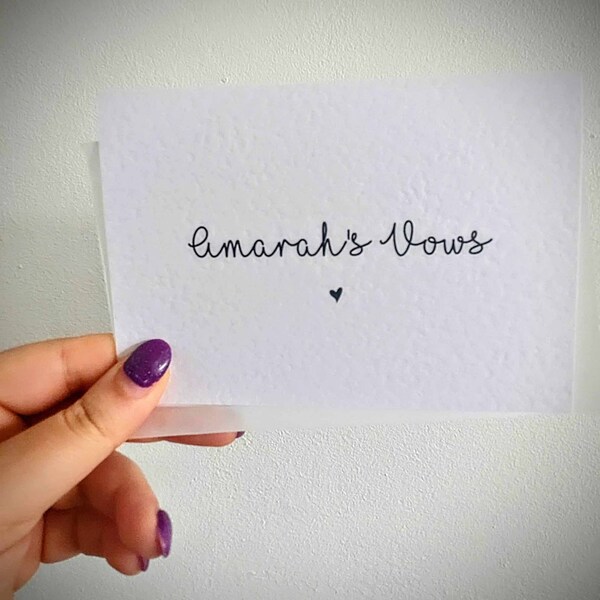 Amarah's Vows
♥